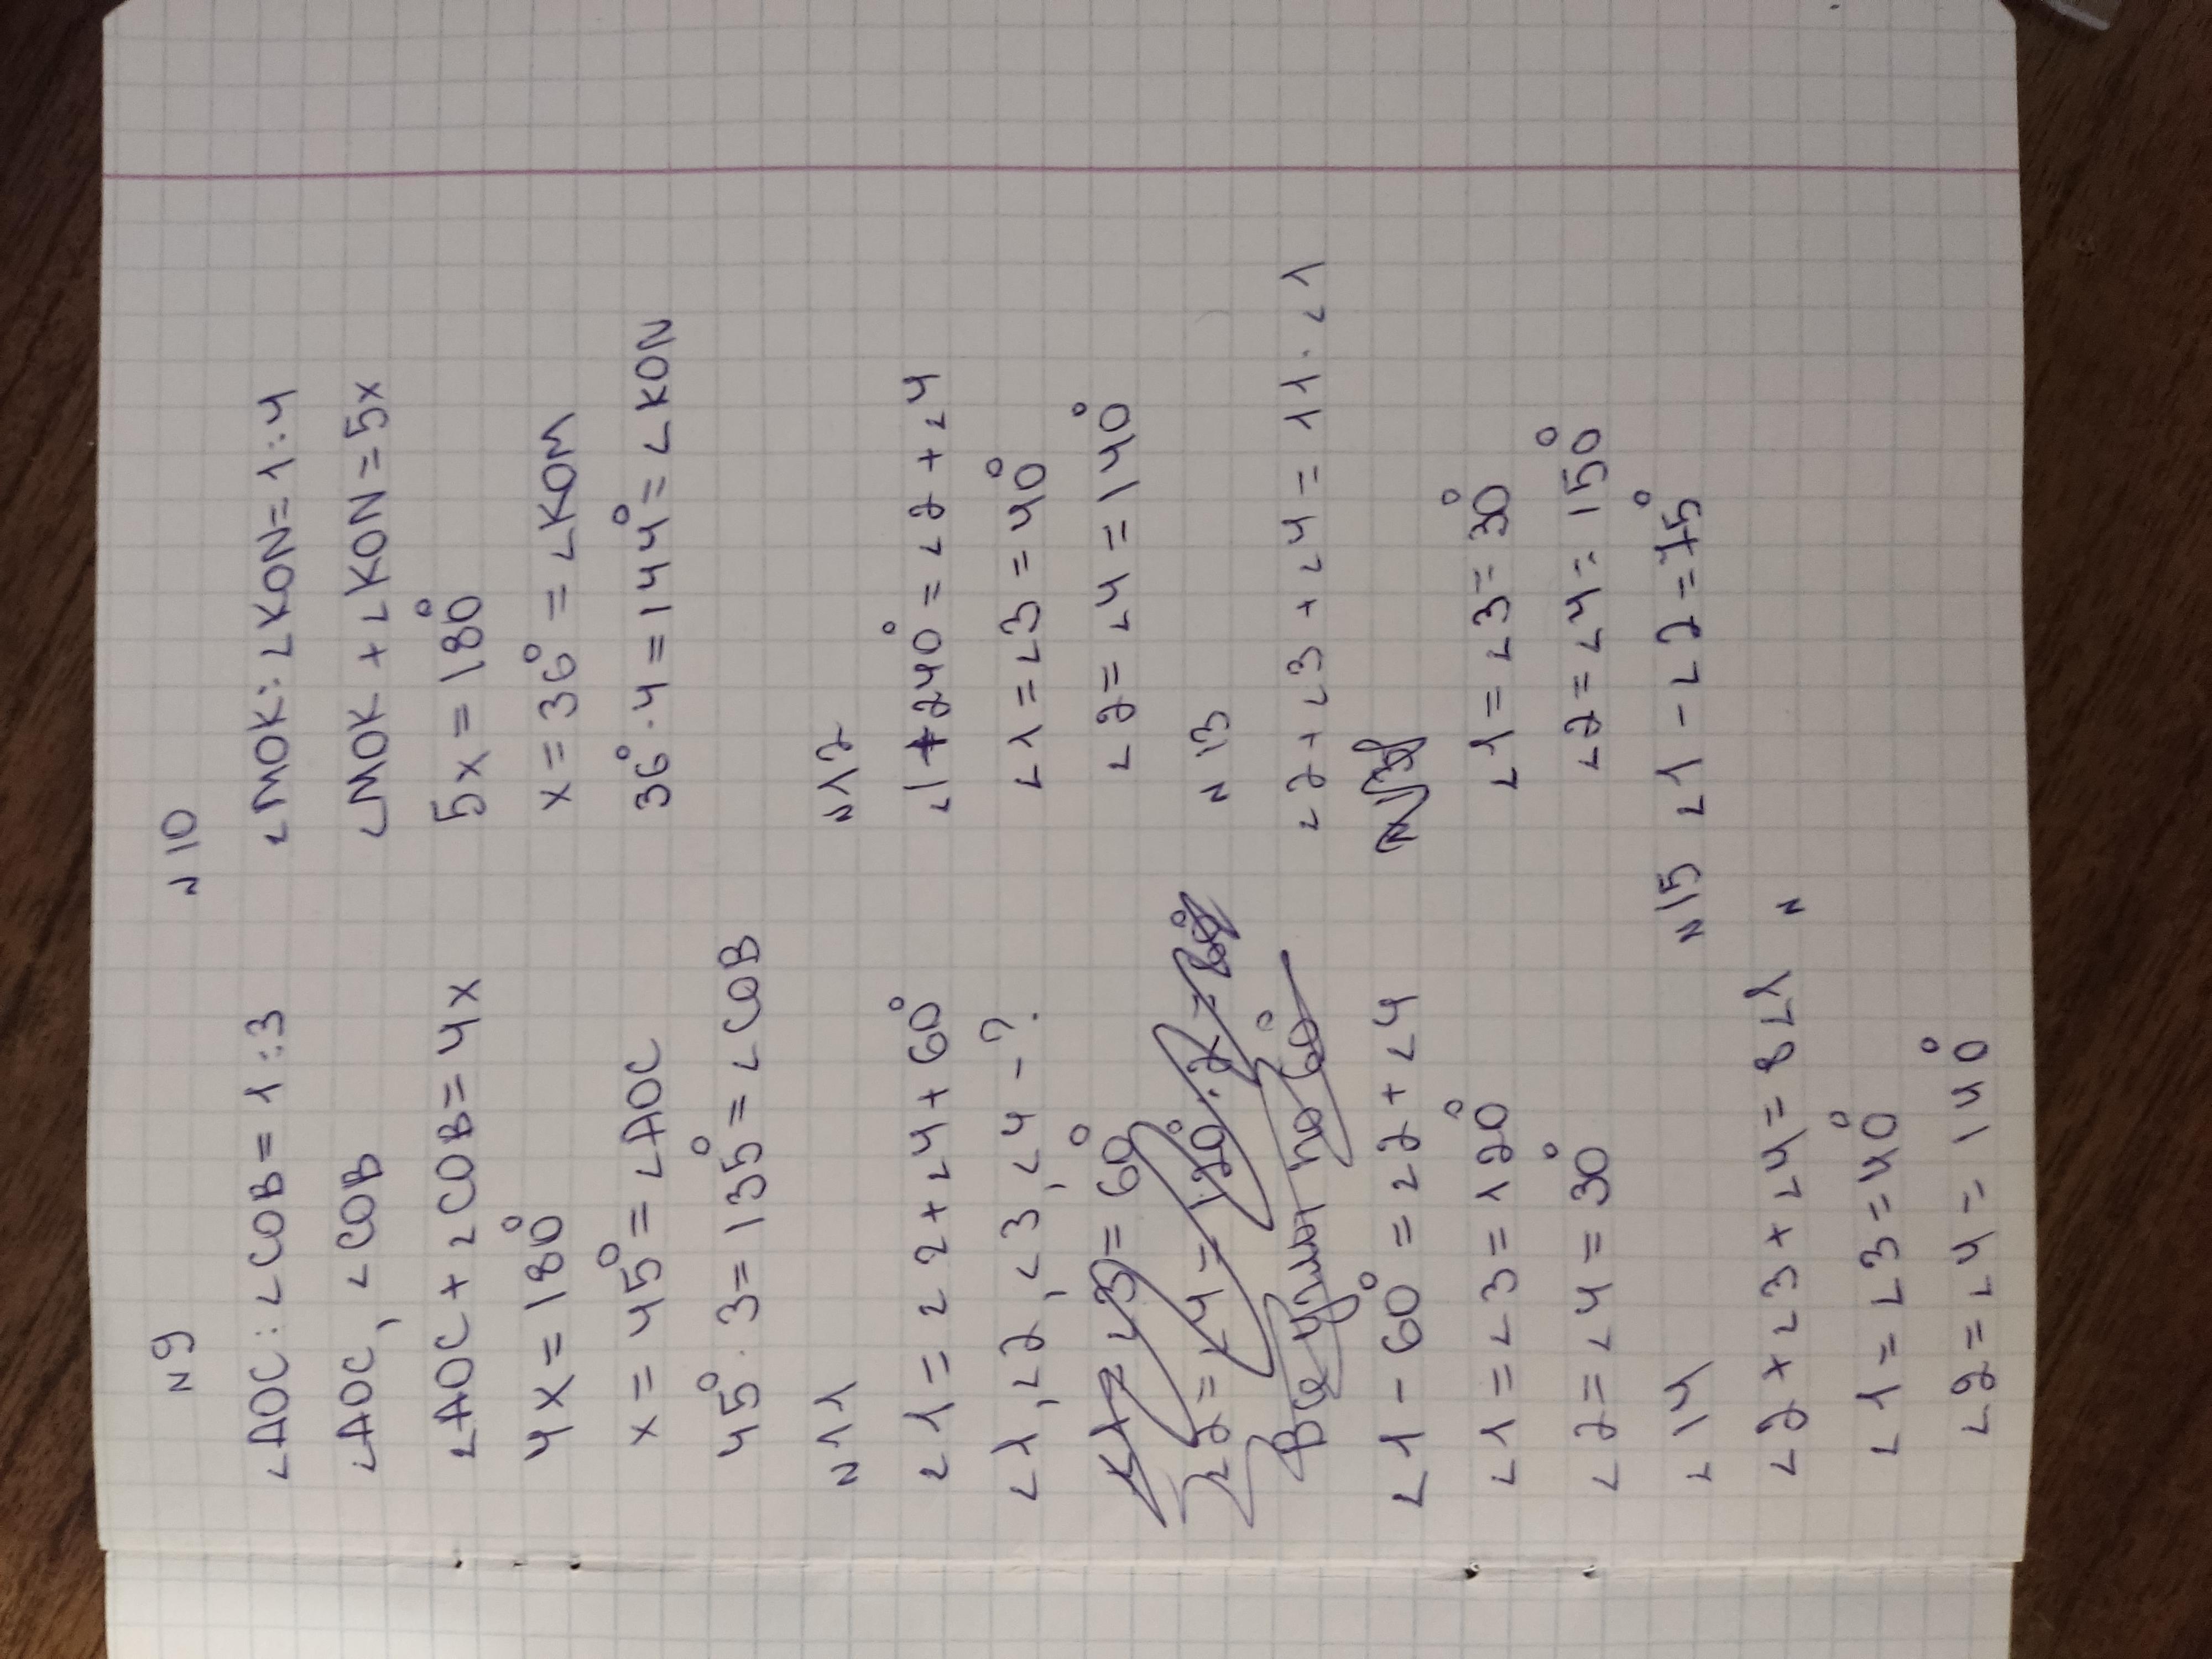 N9
∠AOC : ∠COB = 1 : 3
∠AOC, ∠COB
∠AOC + ∠COB = 4x
4x = 180°
x = 45° = ∠AOC
45° · 3 = 135° = ∠COB
N11
∠1 = ∠2 + ∠4 + 60°
∠1, ∠2, ∠3, ∠4 - ?
∠1 = ∠3 = 60°
∠2 = ∠4 = 120° : 2 = 60°
Все углы по 60°
∠1 - 60° = ∠2 + ∠4
∠1 = ∠3 = 120°
∠2 = ∠4 = 30°
∠14
∠2 + ∠3 + ∠4 = 8∠1
∠1 = ∠3 = 40°
∠2 = ∠4 = 140°
N10
∠MOK : ∠KON = 1 : 4
∠MOK + ∠KON = 5x
5x = 180°
x = 36° = ∠KOM
36° · 4 = 144° = ∠KON
N12
∠1 + 240° = ∠2 + ∠4
∠1 = ∠3 = 40°
∠2 = ∠4 = 140°
N13
∠2 + ∠3 + ∠4 = 11 · ∠1
∠1 = ∠3 = 30°
∠2 = ∠4 = 150°
N15 ∠1 - ∠2 = 75°
N